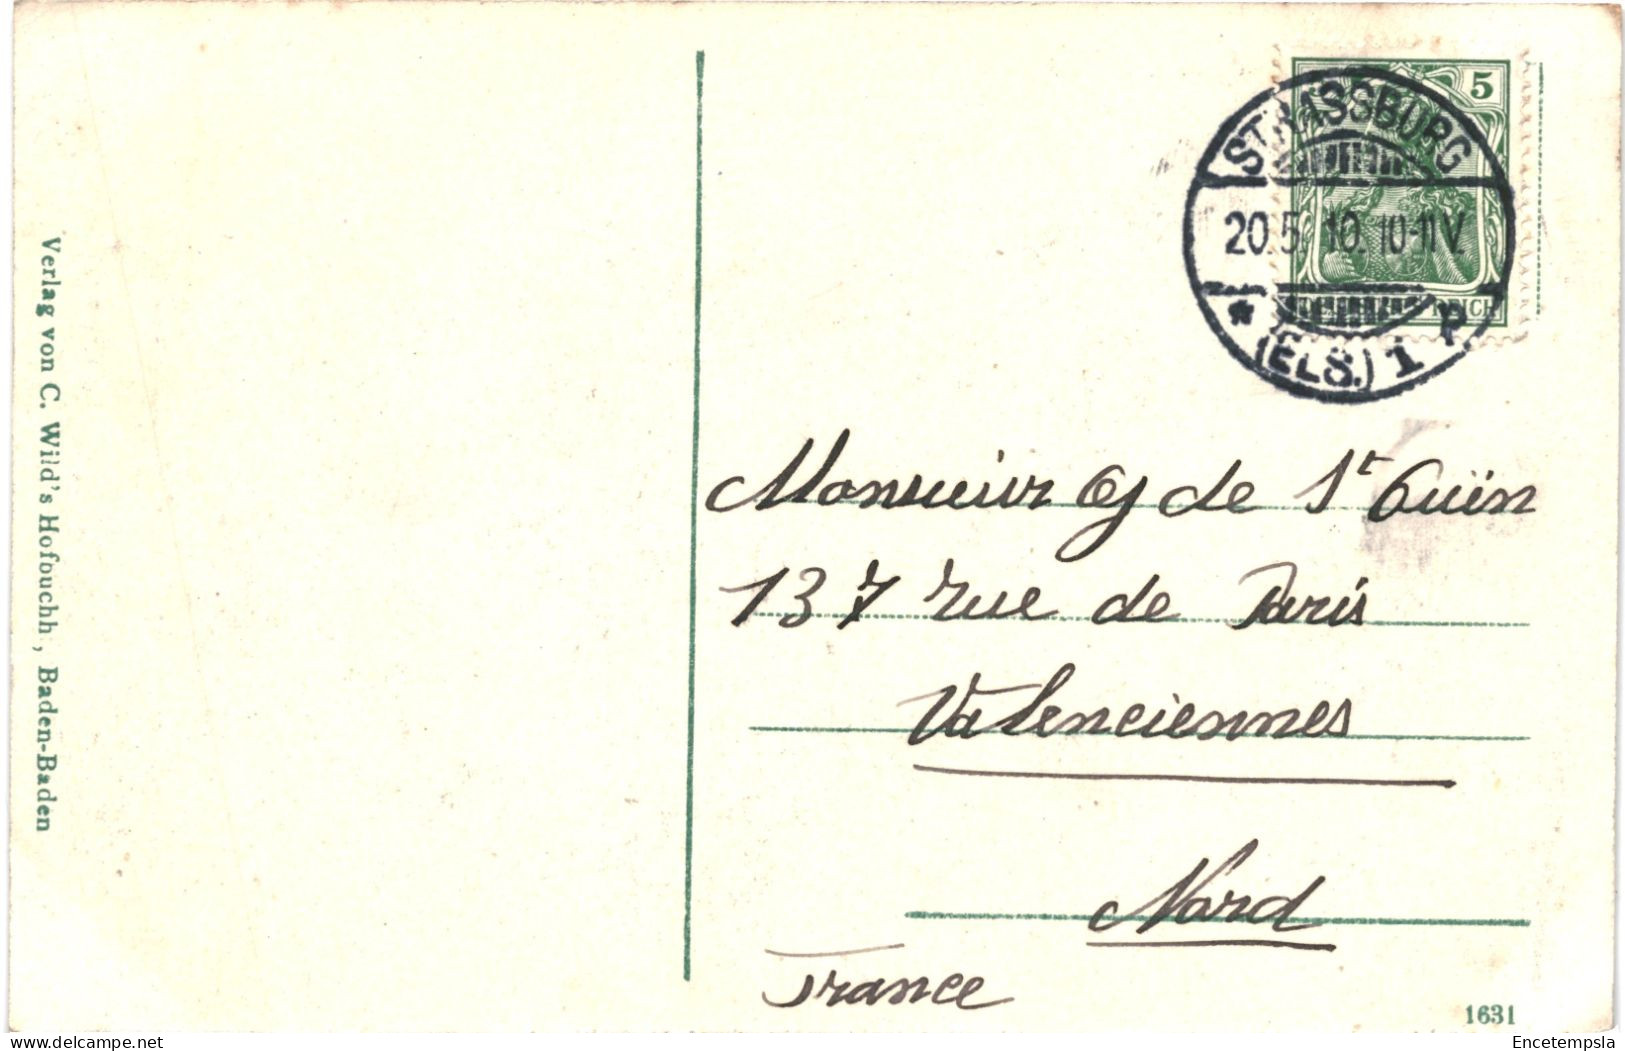 5
STRASSBURG
20.5. 10. 10-11 V.
* (ELS.) 1 P
REICH
Monsieur G de St Quïn
137 rue de Paris
Valenciennes
Nord
France
Verlag von C. Wild's Hofbuchh., Baden-Baden
1631
Encetempsla